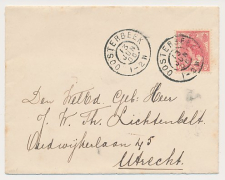 OOSTERBEEK
1-2N
OOSTERBEEK
1-2N
Den WelEd. Geb: Heer
J. W. Th. Lichtenbelt.
Oudwijkerlaan 45
Utrecht.